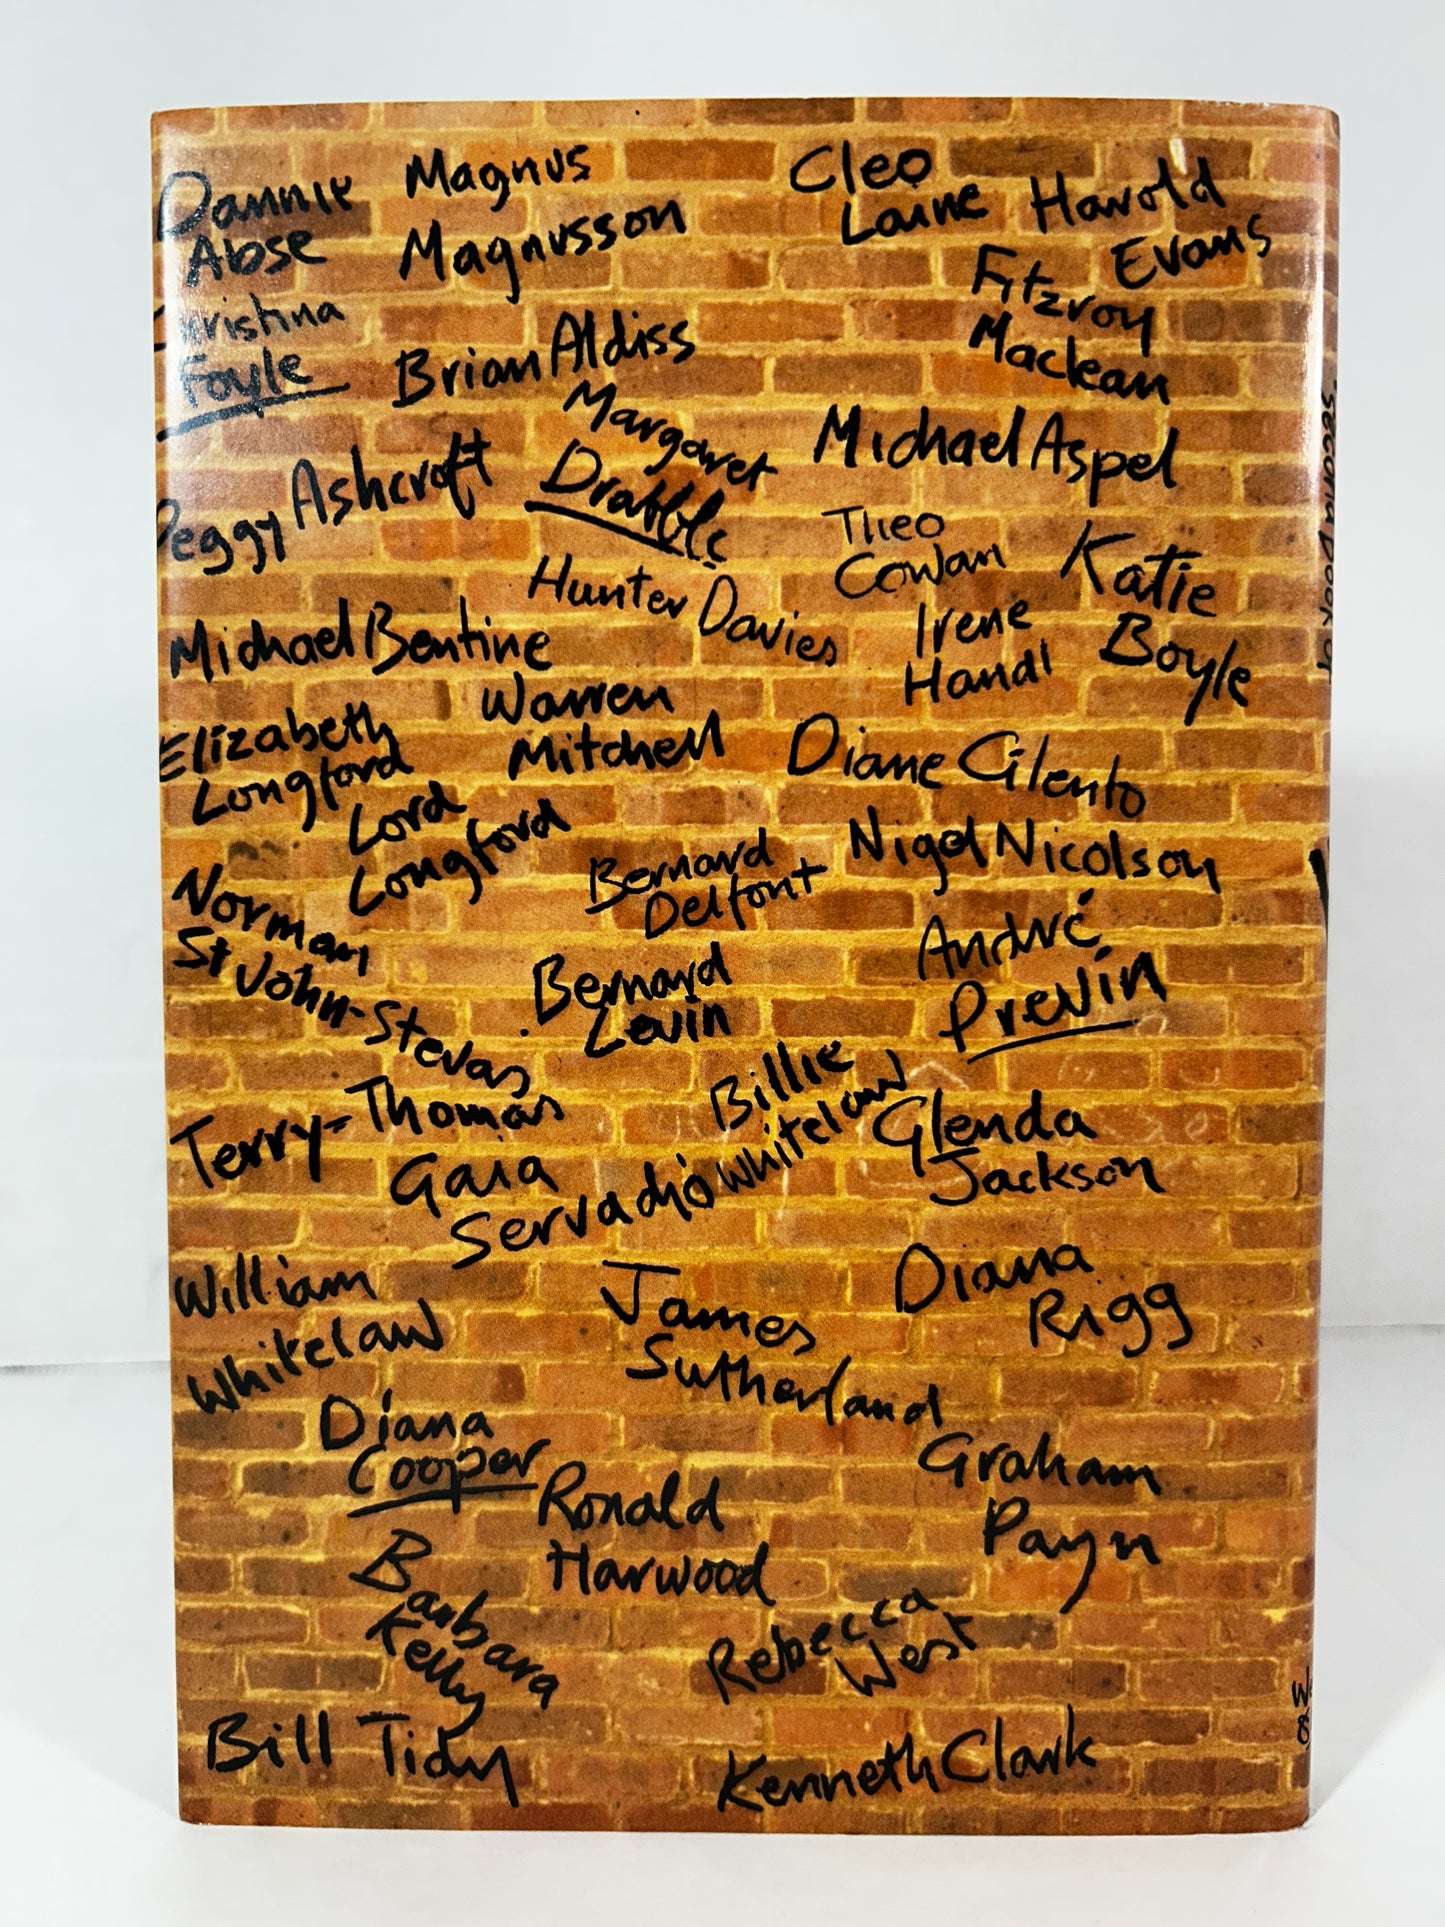 Dannie
Abse
Magnus
Magnusson
Cleo
Laine
Harold
Evans
Christina
Foyle
Brian Aldiss
Fitzroy
Maclean
Margaret
Drabble
Michael Aspel
Peggy Ashcroft
Theo
Cowan
Katie
Boyle
Hunter Davies
Irene
Handl
Michael Bentine
Warren
Mitchell
Elizabeth
Longford
Lord
Longford
Diane Cilento
Nigel Nicolson
Bernard
Delfont
Norman
St John-Stevas
André
Previn
Bernard
Levin
Billie
Whitelaw
Terry-Thomas
Glenda
Jackson
Gaia
Servadio
William
Whitelaw
James
Sutherland
Diana
Rigg
Diana
Cooper
Ronald
Harwood
Graham
Payn
Barbara
Kelly
Rebecca
West
Bill Tidy
Kenneth Clark
second book of